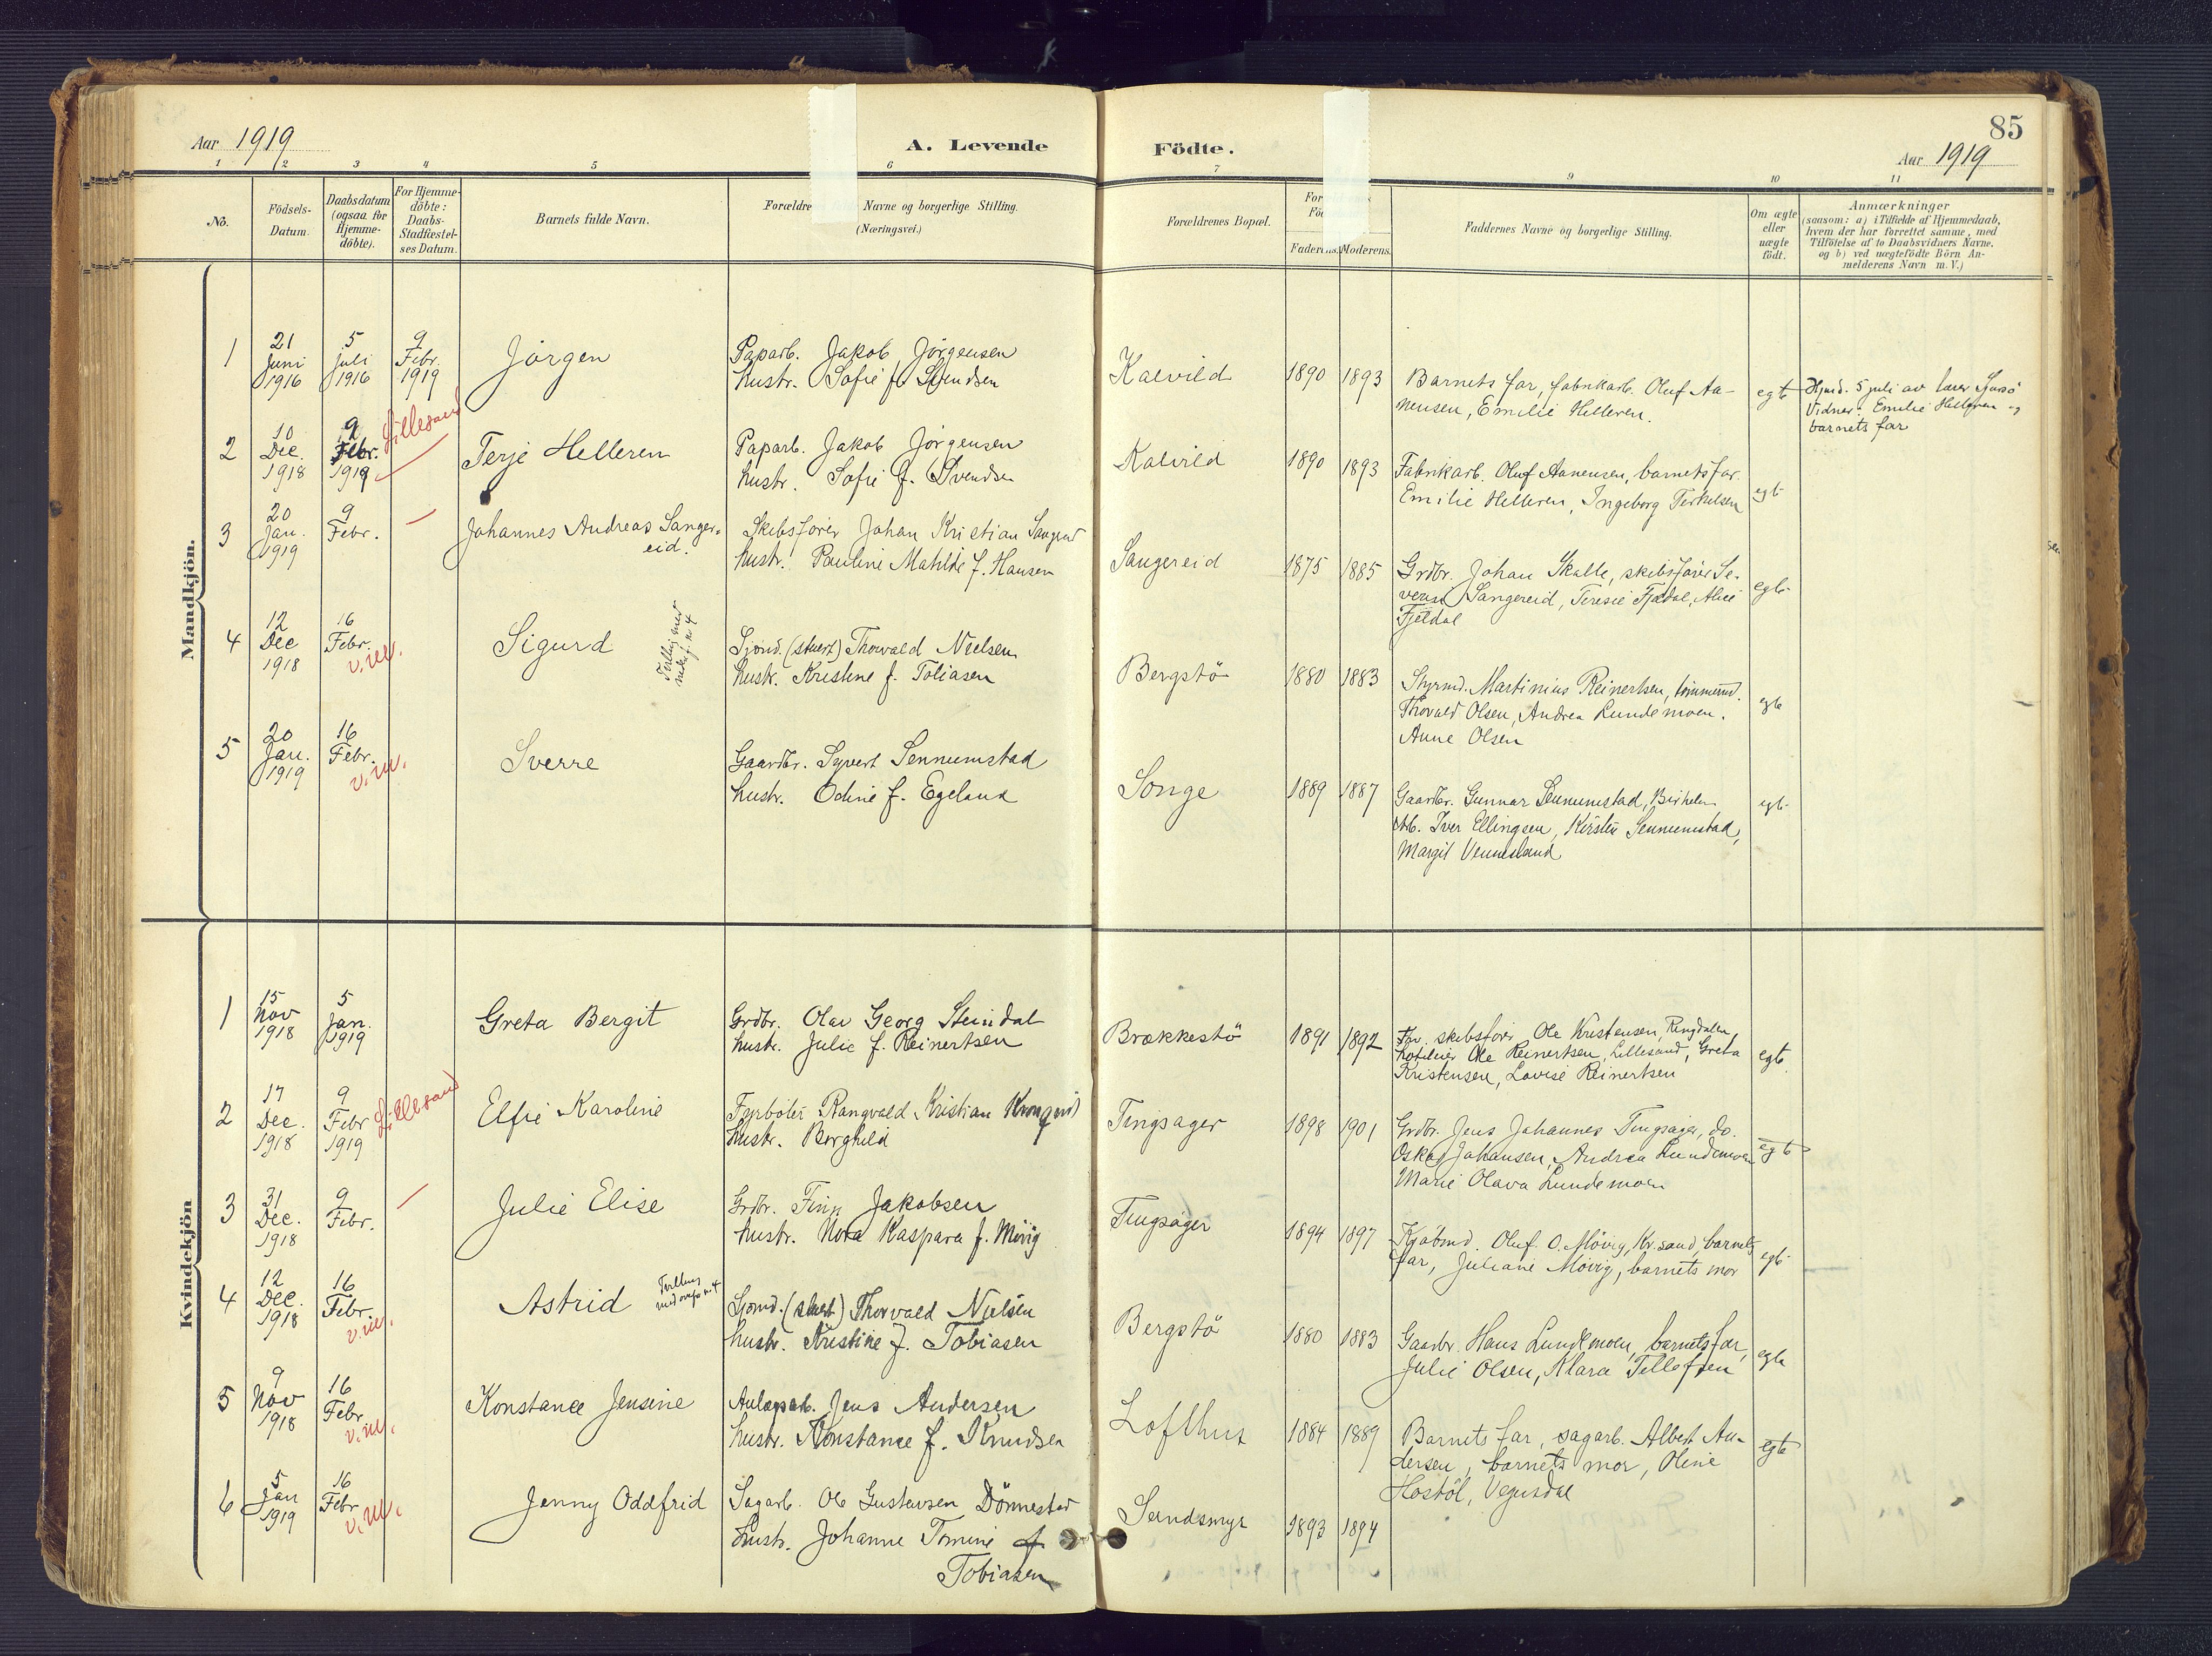 85
Aar 1919
A. Levende Födte.
Aar 1919
1 2 3 4 5 6 7 9 10 11
No.
Födsels-
Datum.
Daabsdatum
(ogsaa for
Hjemme-
döbte).
For Hjemme-
döbte:
Daabs-
Stadfæstel-
ses Datum.
Barnets fulde Navn.
Forældre Navne og borgerlige Stilling.
(Næringsvei.)
Forældrenes Bopæl.
For
Fö
Faderens. Moderens.
Faddernes Navne og borgerlige Stilling.
Om ægte
eller
uægte
födt.
Anmærkninger
(saasom: a) i Tilfælde af Hjemmedaab,
hvem der har forrettet samme, med
Tilföielse af to Daabsvidners Navne.
og b) ved uægtefödte Börn An-
melderens Navn m. V.)
Mandkjön.
1
21
Juni
1916
5
Juli
1916
9
Febr.
1919
Jörgen
Paparb. Jakob Jörgensen
hustr. Sofie f. Svendsen
Kalvild
1890 1893
Barnets far, fabrikarb. Oluf Aa-
nensen, Emilie Helleren.
egt
Hjmd. 5 juli av lærer
Vidner: Emilie Helleren og
barnets far
2
10
Dec.
1918
9
Febr.
1919
Lillesand
Terje Helleren
Paparb. Jakob Jörgensen
hustr. Sofie f. Svendsen
Kalvild
1890 1893
Fabrikarb. Oluf Aanensen, barnets far
Emilie Helleren, Ingeborg Terkelsen
egt
3
20
Jan.
1919
9
Febr.
—
Johannes Andreas Sanger-
eid.
Skibsförer Johan Kristian Sangereid
hustr. Pauline Matilde f. Hansen
Sangereid
1875 1885
Grdbr. Johan Skalle, skibsförer Se-
verin Sangereid, Teresie Fjeldal, Alice
Fjeldal
egt.
4
12
Dec
1918
16
Febr.
v.m.
Sigurd
Tvilling med
nedenf. nr 4
Sjömd. (stuert) Thorvald Nielsen
hustr. Kristine f. Tobiasen
Bergstö
1880 1883
Styrmd. Martinius Reinertsen, tömmermd.
Thorvald Olsen, Andrea Lundemoen.
Anne Olsen
egt
5
20
Jan.
1919
16
Febr.
v.m.
Sverre
Gaardbr. Syvert Sennumstad
hustr. Odine f. Egeland
Songe
1889 1887
Gaardbr. Gunnar Sennumstad, Birkeln
Arb. Iver Ellingsen, Kirstin Sennumstad,
Margit Vennesland
egt.
Kvindekjön
1
15
Nov
1918
5
Jan.
1919
Greta Bergit
Grdbr. Olav Georg Steindal
hustr. Julie f. Reinertsen
Brækkestö
1891 1892
Fhv. skibsförer Ole Kristensen, Ringdalen,
hoteleier Ole Reinertsen, Lillesand, Greta
Kristensen, Lovise Reinertsen
egt
2
17
Dec.
1918
9
Febr
1919
Lillesand
Elfie Karoline
Fyrböter Rangvald Kristian Kronqvist
hustr. Borghild
Tingsager
1898 1901
Grdbr. Jens Johannes Tingsager, do.
Oskar Johansen, Andrea Lundemoen
Marie Olava Lundemoen
egt
3
31
Dec.
1918
9
Febr.
—
Julie Elise
Grdbr. Finn Jakobsen
hustr. Nora Kaspara f. Mövig
Tingsager
1894 1897
Kjöbmd. Oluf O. Mövig, Kr.sand, barnets
far, Juliane Mövig, barnets mor
egt
4
12
Dec.
1918
16
Febr.
v.m.
Astrid
Tvilling
med ovenf. nr 4
Sjömd. (stuert) Thorvald Nielsen
hustr. Kristine f. Tobiasen
Bergstö
1880 1883
Gaardbr. Hans Lundemoen, barnets far,
Julie Olsen, Klara Tellefsen
egt
5
9
Nov
1918
16
Febr
v.m.
Konstance Jensine
Anlægsarb. Jens Andersen
hustr. Konstance f. Knudsen
Lofthus
1884 1889
Barnets far, sagarb. Albert An-
dersen, barnets mor, Oline
Hostöl, Vegusdal
egt
6
5
Jan
1919
16
Febr
v.m.
Jenny Oddfrid
Sagarb. Ole Gustavsen Dönnestad
hustr. Johanne Tomine f.
Tobiasen
Sundsmyr
1893 1894